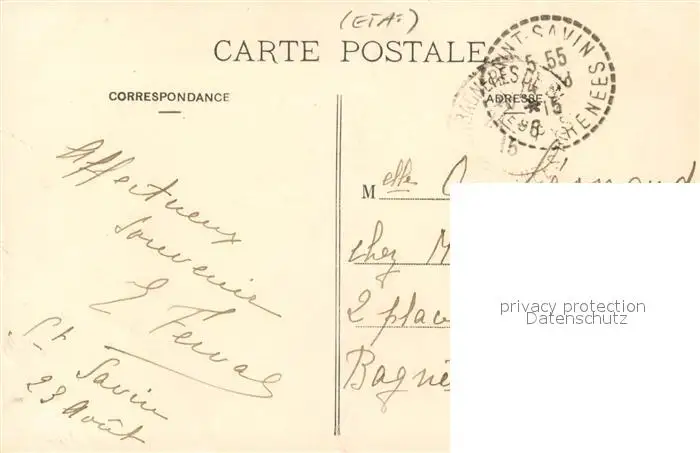 (ETA:)
CARTE POSTALE
CORRESPONDANCE
ADRESSE
SAINT-SAVIN
5 55
15
PYRENEES
BAGNERES DE
15
Affectueux
souvenir
St Savin
23 Août
Melle
chez M
2 place
Bagnè
privacy protection
Datenschutz